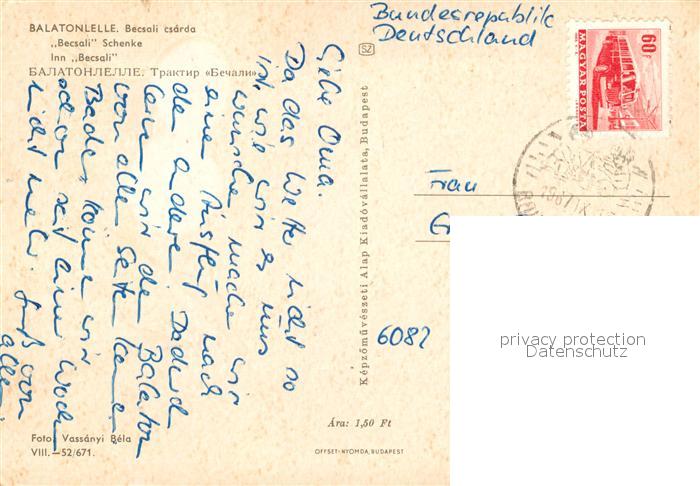 BALATONLELLE. Becsali csárda
„Becsali" Schenke
Inn „Becsali"
БАЛАТОНЛЕЛЛЕ. Трактир «Бечали»
Liebe Oma.
Da das Wetter nicht so
ist, wie wir es uns
wünschen machen wir
einen Ausflug nach
dem anderen. Dadurch
lernen wir den Balaton
von allen Seiten kennen
Baden können wir
schon seit einer Woche
nicht mehr. Gruß von
allen
Foto: Vassányi Béla
VIII.—52/671.
Képzőművészeti Alap Kiadóvállalata, Budapest
SZ
Ára: 1,50 Ft
OFFSET-NYOMDA, BUDAPEST
Bundesrepublik
Deutschland
60f
MAGYAR POSTA
Frau
6082
privacy protection
Datenschutz